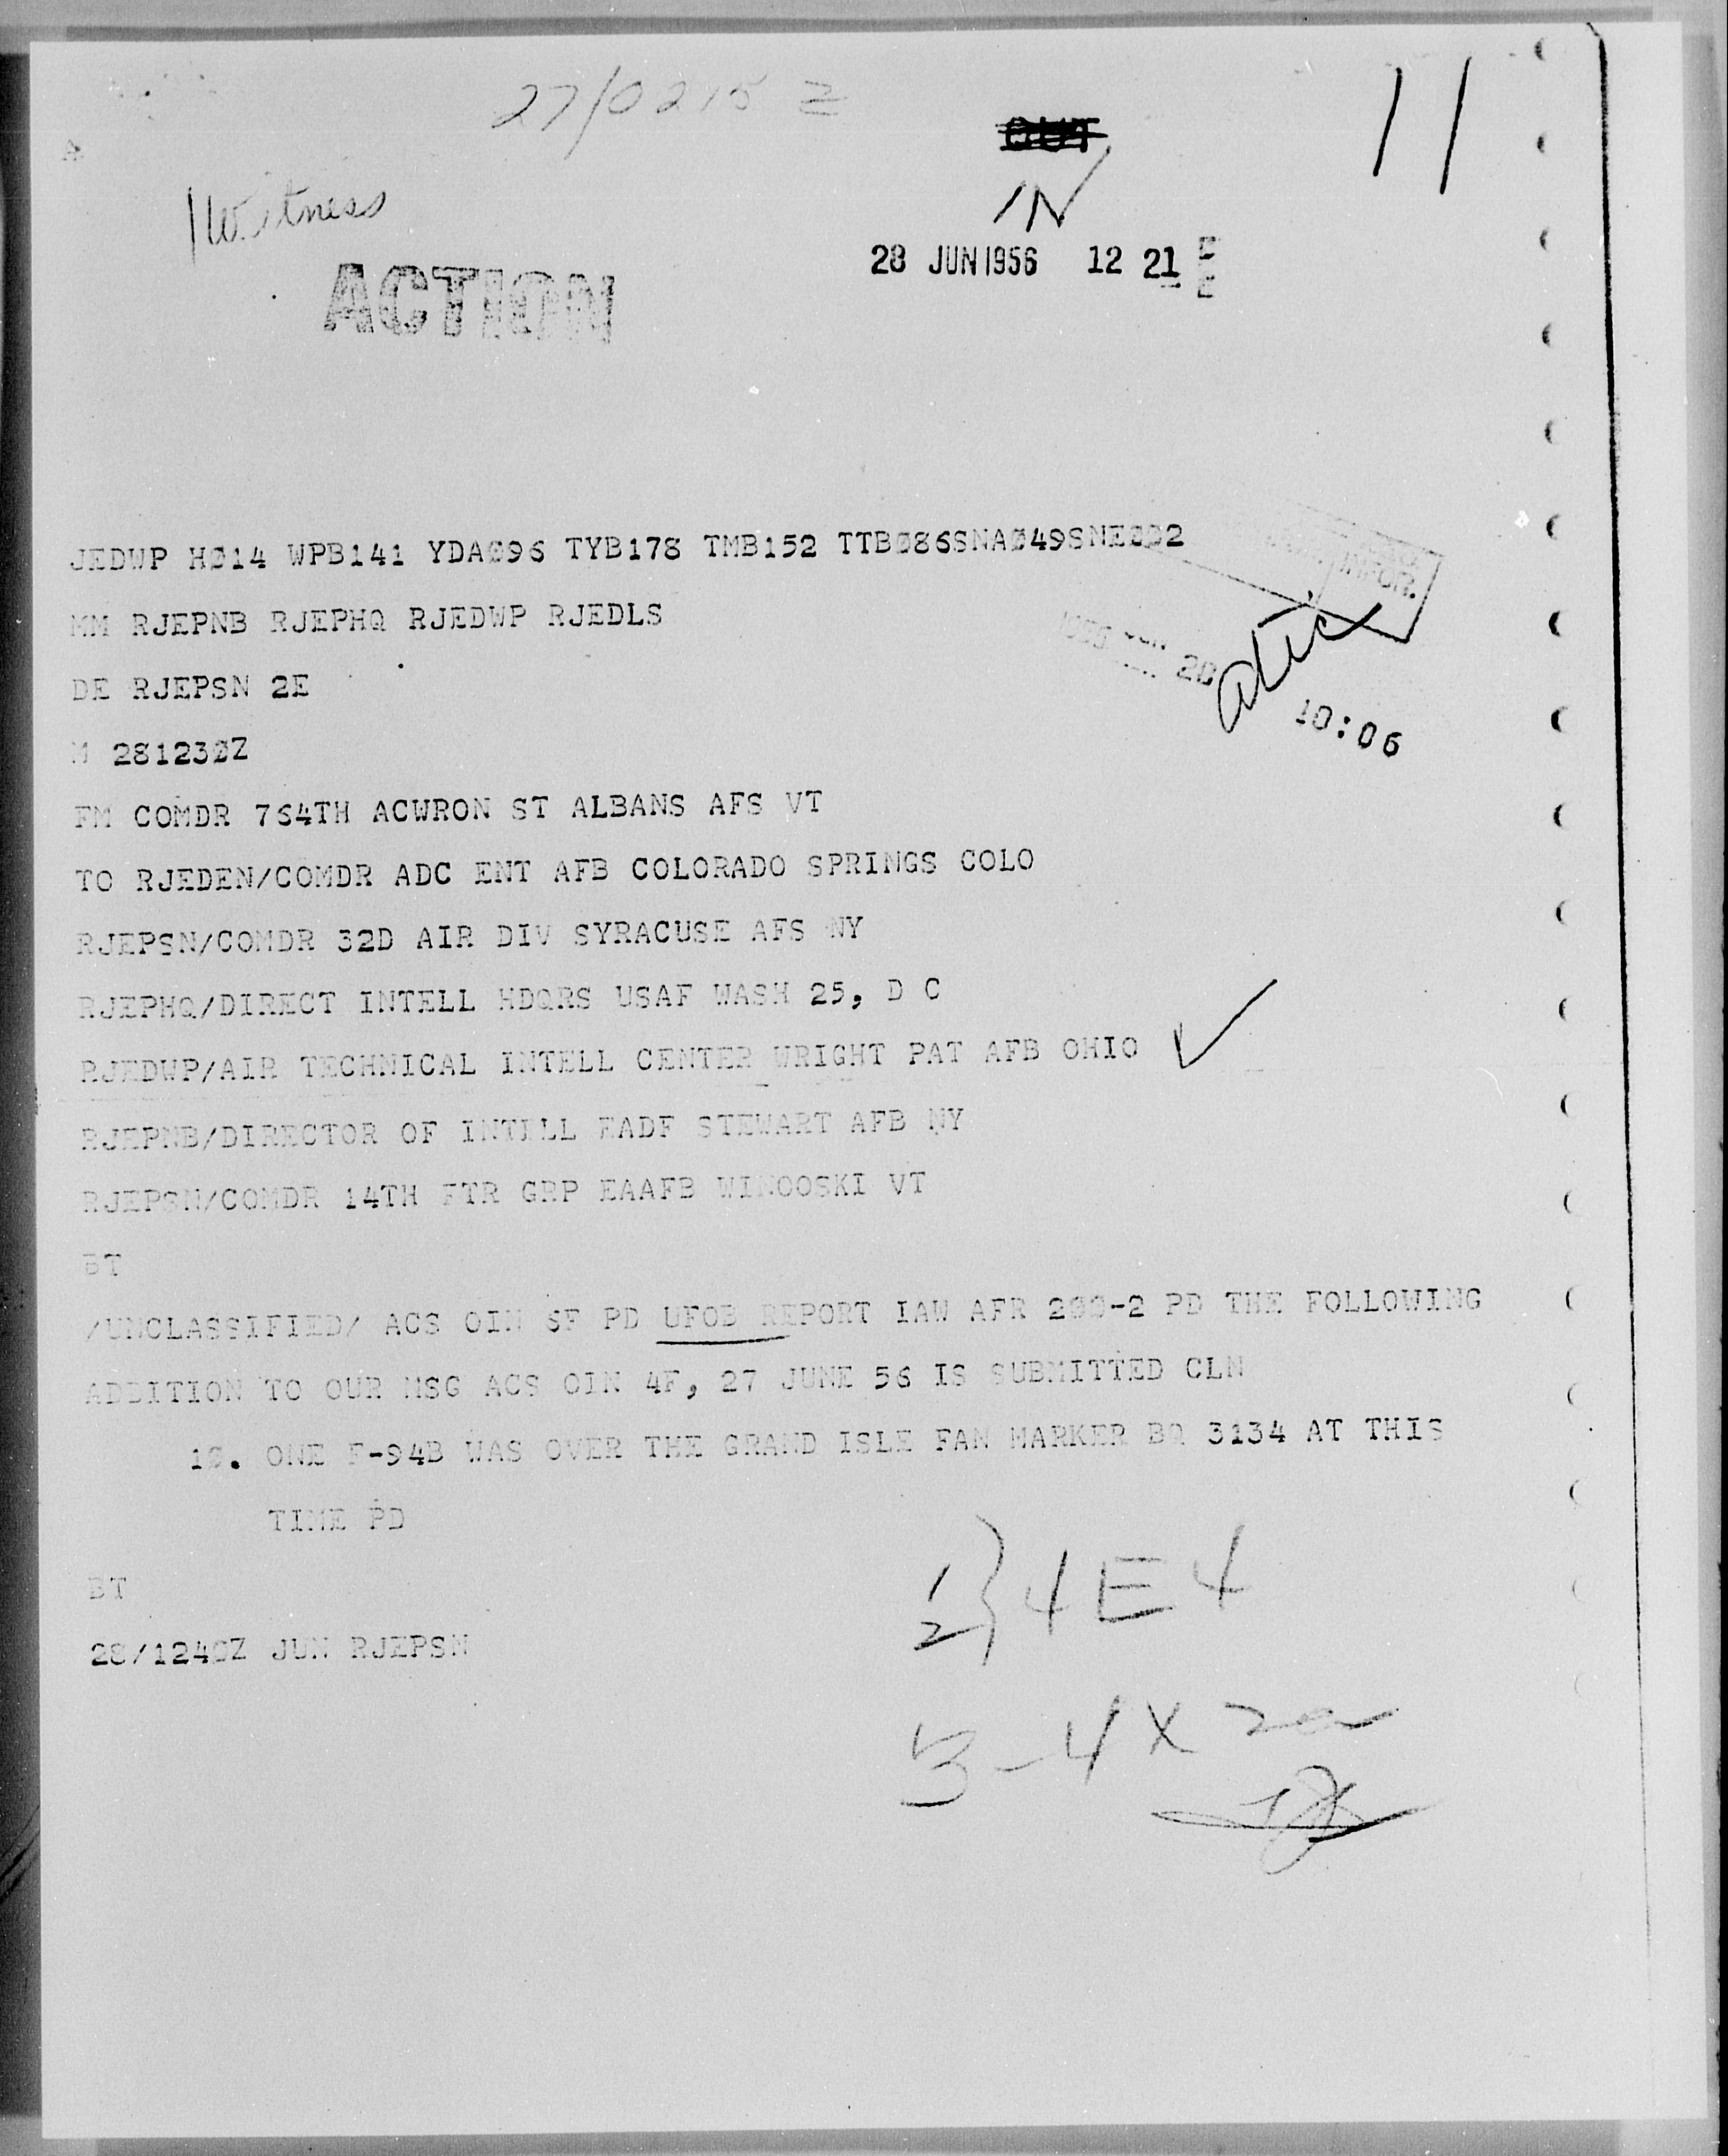 27/0215 Z
OUT
IN
11
1 Witness
ACTION
28 JUN 1956 12 21
JEDWP HØ14 WPB141 YDAØ96 TYB178 TMB152 TTBØ86SNAØ49SNEØØ2
MM RJEPNB RJEPHQ RJEDWP RJEDLS
INFOR.
DE RJEPSN 2E
28
atic
10:06
M 28123ØZ
FM COMDR 764TH ACWRON ST ALBANS AFS VT
TO RJEDEN/COMDR ADC ENT AFB COLORADO SPRINGS COLO
RJEPSN/COMDR 32D AIR DIV SYRACUSE AFS NY
RJEPHQ/DIRECT INTELL HDQRS USAF WASH 25, D C
RJEDWP/AIR TECHNICAL INTELL CENTER WRIGHT PAT AFB OHIO ✓
RJEPNB/DIRECTOR OF INTELL EADF STEWART AFB NY
RJEPSN/COMDR 14TH FTR GRP EAAFB WINOOSKI VT
BT
/UNCLASSIFIED/ ACS OIN 5F PD UFOB REPORT IAW AFR 2ØØ-2 PD THE FOLLOWING
ADDITION TO OUR MSG ACS OIN 4F, 27 JUNE 56 IS SUBMITTED CLN
1Ø. ONE F-94B WAS OVER THE GRAND ISLE FAN MARKER BQ 3134 AT THIS
TIME PD
BT
28/124ØZ JUN RJEPSN
1
2 } 4E4
3-4X2a